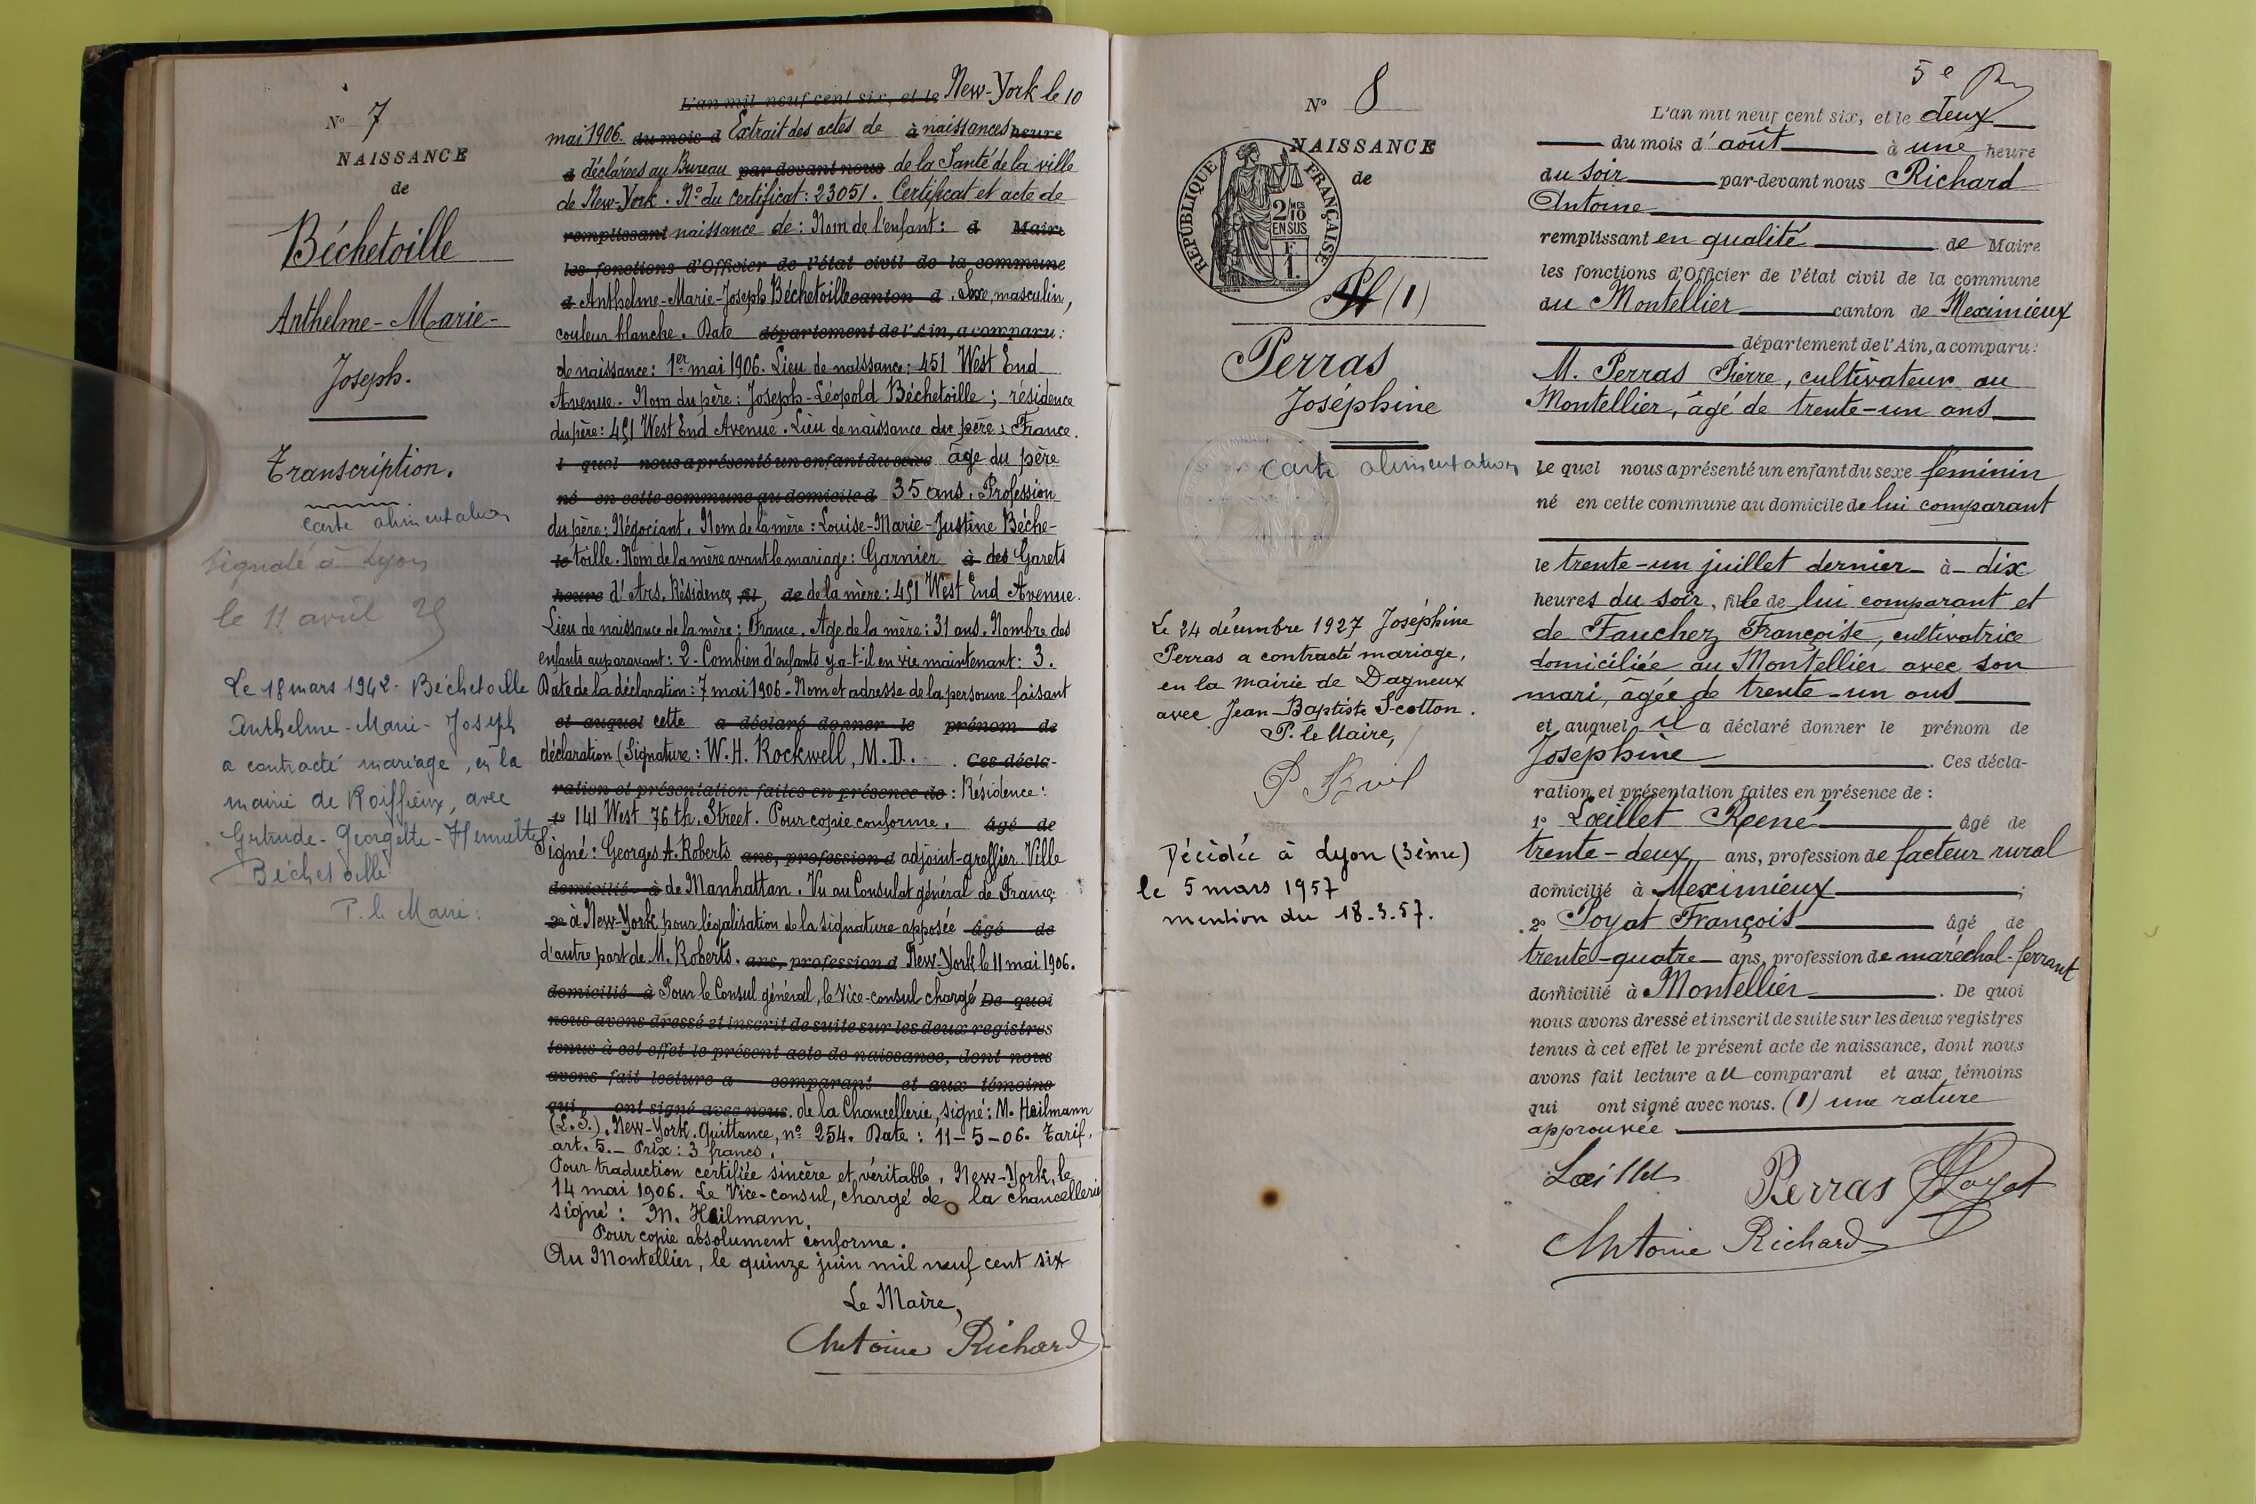 N° 7
NAISSANCE
de
Béchetoille
Anthelme-Marie-
Joseph.
Transcription.
carte alimentation
signalé à Lyon
le 11 avril
Le 18 mars 1942 - Béchetoille
Anthelme-Marie-Joseph
a contracté mariage, en la
mairie de Roiffieux, avec
Gertrude-Georgette-Henriette
Béchetoille
P. le Maire:
L'an mil neuf cent six, et le New-York le 10
mai 1906. du mois d Extrait des actes de à naissances heure
d déclarées au Bureau par devant nous de la Santé de la ville
de New-York. N° du certificat: 23051. Certificat et acte de
remplissant naissance de: Nom de l'enfant: d Maire
les fonctions d'Officier de l'état civil de la commune
d Anthelme-Marie-Joseph Béchetoille canton d. Sexe, masculin,
couleur blanche. Date département de l'Ain, a comparu:
de naissance: 1er mai 1906. Lieu de naissance: 451 West End
Avenue. Nom du père: Joseph-Léopold Béchetoille; résidence
du père: 451 West End Avenue. Lieu de naissance du père: France.
l quel nous a présenté un enfant du sexe âge du père
né en cette commune au domicile d 35 ans. Profession
du père: Négociant. Nom de la mère: Louise-Marie-Justine Béche-
le toille. Nom de la mère avant le mariage: Garnier à des Garets
heure d'Ars. Résidence fil de de la mère: 451 West End Avenue.
Lieu de naissance de la mère: France. Age de la mère: 31 ans. Nombre des
enfants auparavant: 2 - Combien d'enfants y a-t-il en vie maintenant: 3.
Date de la déclaration: 7 mai 1906 - Nom et adresse de la personne faisant
et auquel cette a déclaré donner le prénom de
déclaration (Signature: W. H. Rockwell, M. D. . Ces décla-
ration et présentation faites en présence de: Résidence:
1° 141 West 76 th. Street. Pour copie conforme. âgé de
Signé: Georges A. Roberts ans, profession d adjoint-greffier Ville
domicilié à de Manhattan. Vu au Consulat général de France
2° à New-York pour légalisation de la signature apposée âgé de
d'autre part de M. Roberts. ans, profession d New-York le 11 mai 1906.
domicilié à Pour le Consul général, le Vice-consul chargé De quoi
nous avons dressé et inscrit de suite sur les deux registres
tenus à cet effet le présent acte de naissance, dont nous
avons fait lecture a comparant et aux témoins
qui ont signé avec nous. de la Chancellerie, signé: M. Heilmann
(L.S.). New-York. Quittance, n° 254. Date: 11-5-06. Tarif,
art. 5. - Prix: 3 francs.
Pour traduction certifiée sincère et véritable, New-York, le
14 mai 1906. Le Vice-consul, chargé de la chancellerie
signé: M. Heilmann.
Pour copie absolument conforme.
Au Montellier, le quinze juin mil neuf cent six
Le Maire,
Antoine Richard
N° 8
NAISSANCE
de
RÉPUBLIQUE FRANÇAISE
2/10
EN SUS
F
1.
(1)
Perras
Joséphine
carte alimentation
Le 24 décembre 1927 Joséphine
Perras a contracté mariage,
en la mairie de Dagneux
avec Jean-Baptiste Scotton.
P. le Maire,
Décédée à Lyon (3ème)
le 5 mars 1957
mention du 18.3.57.
5e
L'an mil neuf cent six, et le deux
du mois d'août à une heure
du soir par-devant nous Richard
Antoine
remplissant en qualité de Maire
les fonctions d'Officier de l'état civil de la commune
du Montellier canton de Meximieux
département de l'Ain, a comparu:
M. Perras Pierre, cultivateur au
Montellier, âgé de trente-un ans
le quel nous a présenté un enfant du sexe féminin
né en cette commune au domicile de lui comparant
le trente-un juillet dernier à dix
heures du soir, fille de lui comparant et
de Fauchez Françoise, cultivatrice
domiciliée au Montellier avec son
mari, âgée de trente-un ans
et auquel il a déclaré donner le prénom de
Joséphine . Ces décla-
ration et présentation faites en présence de:
1° Lœillet René âgé de
trente-deux ans, profession de facteur rural
domicilié à Meximieux ;
2° Poyat François âgé de
trente-quatre ans, profession de maréchal-ferrant
domicilié à Montellier . De quoi
nous avons dressé et inscrit de suite sur les deux registres
tenus à cet effet le présent acte de naissance, dont nous
avons fait lecture au comparant et aux témoins
qui ont signé avec nous. (1) une rature
approuvée
Lœillet Perras Poyat
Antoine Richard